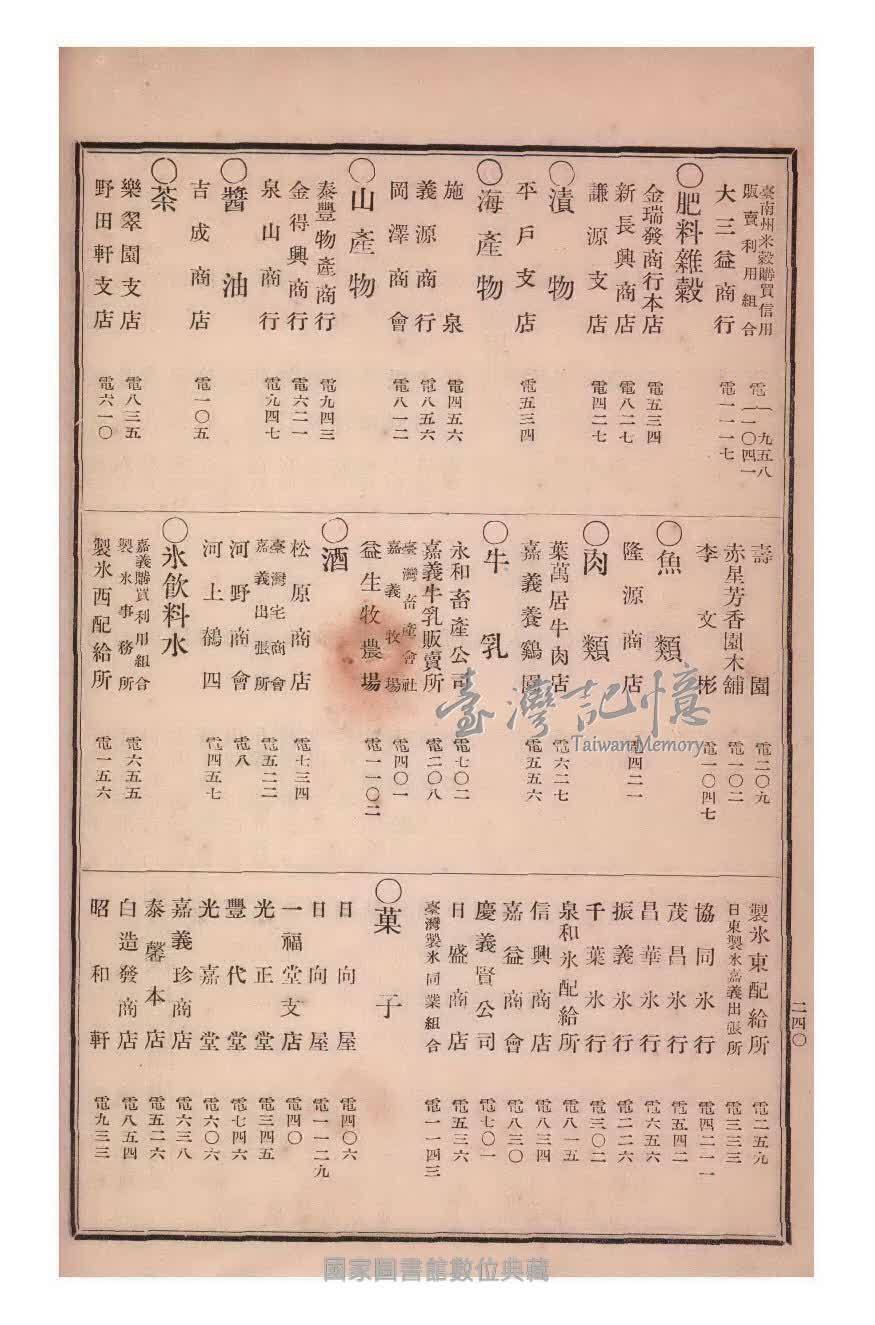 臺南州米穀購買信用
販賣利用組合 電(九五八
一〇四一
大三益商行 電一一一七
〇肥料雜穀
金瑞發商行本店 電五三四
新長興商店 電八二七
謙源支店 電四二七
〇漬物
平戶支店 電五三四
〇海產物
施泉 電四五六
義源商行 電八五六
岡澤商會 電八一二
〇山產物
泰豐物產商行 電九四三
金得興商行 電六二一
泉山商行 電九四七
〇醬油
吉成商店 電一〇五
〇茶
樂翠園支店 電八三五
野田軒支店 電六一〇
壽園 電二〇九
赤星芳香園木舖 電一〇二
李文彬 電一〇四七
〇魚類
隆源商店 電四二一
〇肉類
葉萬居牛肉店 電六二七
嘉義養鷄園 電五五六
〇牛乳
永和畜產公司 電七〇二
嘉義牛乳販賣所 電二〇八
臺灣畜產會社
嘉義牧場 電四〇一
益生牧農場 電一一〇二
〇酒
松原商店 電七三四
臺灣宅商會
嘉義出張所 電五二二
河野商會 電八
河上鶴四 電四五七
〇氷飲料水
嘉義購買利用組合
製氷事務所 電六五五
製氷西配給所 電一五六
製氷東配給所 電二五九
日東製氷嘉義出張所 電三三三
協同氷行 電四二一一
茂昌氷行 電五四二
昌華氷行 電六五六
振義氷行 電二二六
千葉氷行 電三〇二
泉和氷配給所 電八一五
信興商店 電八三四
嘉益商會 電八三〇
慶義賢公司 電七〇一
日盛商店 電五三六
臺灣製氷同業組合 電一一四三
〇菓子
日向屋 電四〇六
日向屋 電一一二九
一福堂支店 電四〇
光正堂 電三四五
豐代堂 電七四六
光嘉堂 電六〇六
嘉義珍商店 電六三八
泰馨本店 電五二六
白造發商店 電八五四
昭和軒 電九三三
二四〇
臺灣記憶
Taiwan Memory
國家圖書館數位典藏